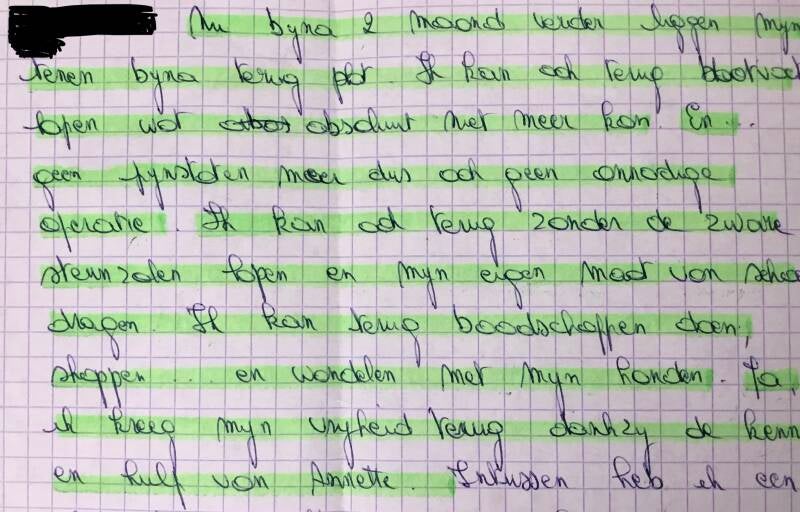 Nu byna 2 maand verder liggen myn
tenen byna terug plat. Ik kan ook terug blootvoe
lopen wat absoluut niet meer kon. En...
geen pynstoten meer dus ook geen onnodige
operatie. Ik kan ook terug zonder de zware
steunzolen lopen en myn eigen maat van scho
dragen. Ik kan terug boodschappen doen,
shoppen... en wandelen met myn honden. Ja,
ik kreeg myn vryheid terug dankzy de kenn
en hulp van Annette. Intussen heb ik een